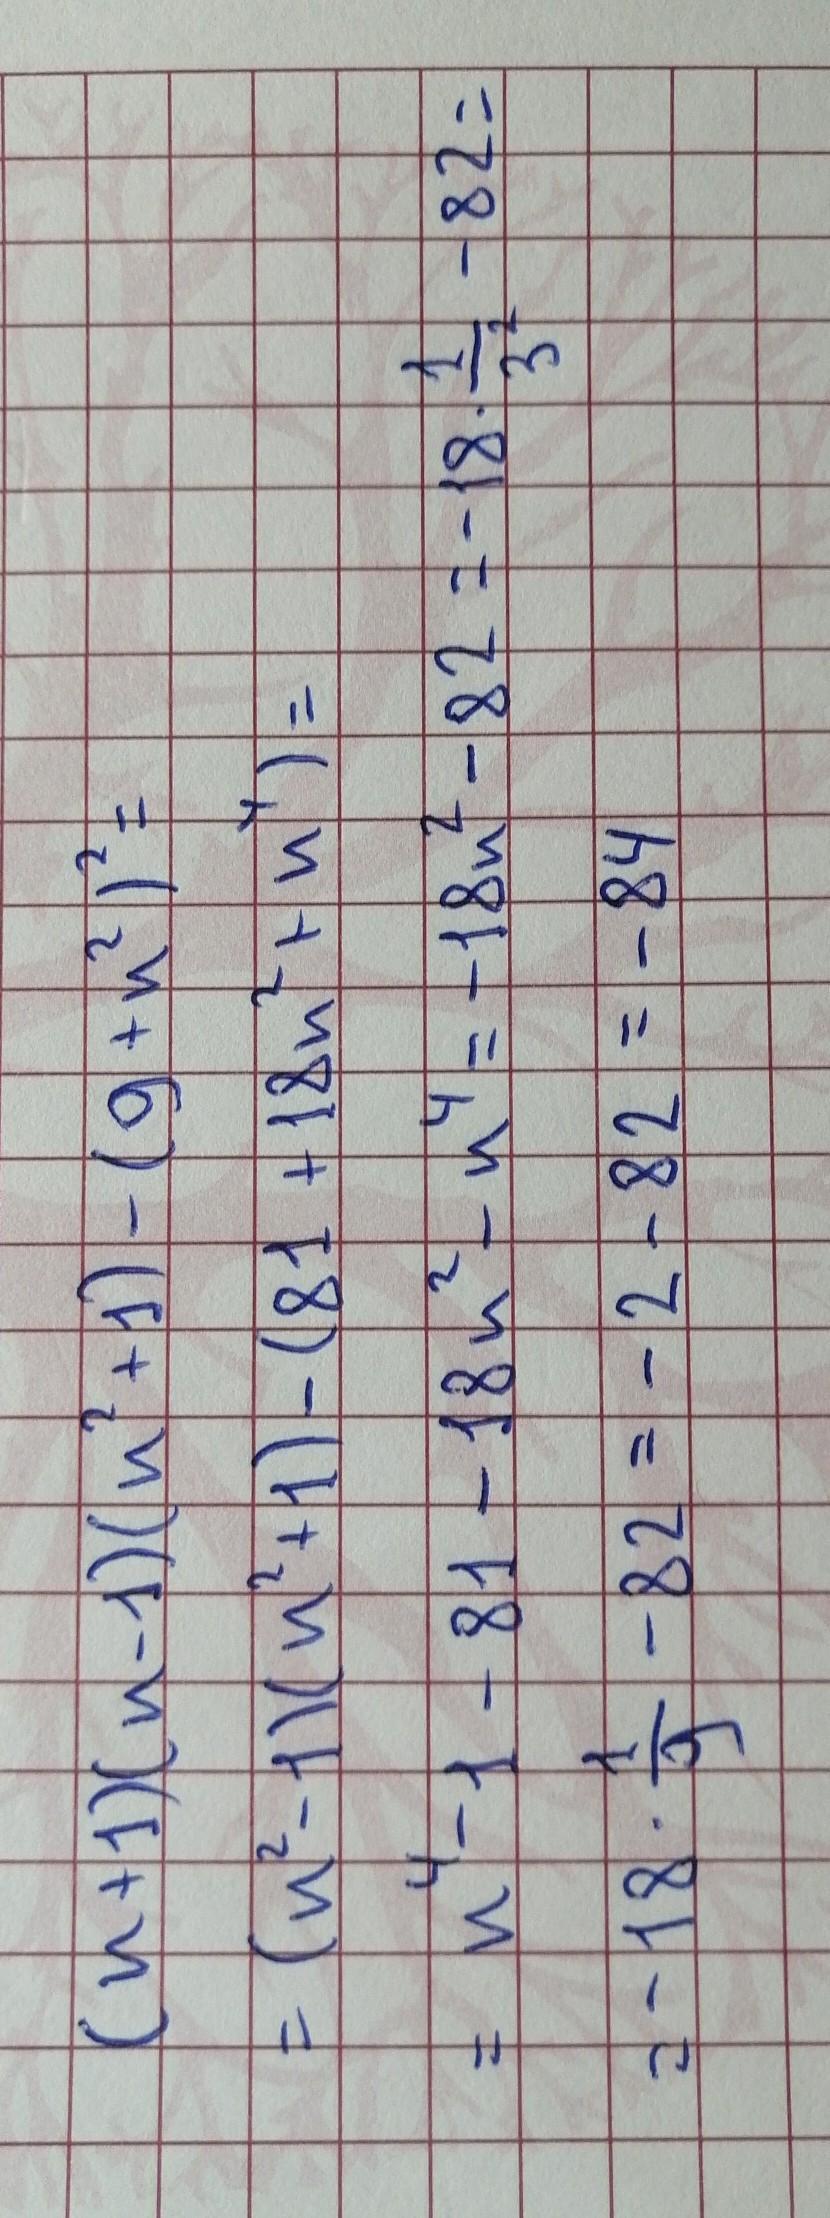 (n+1)(n-1)(n²+1)-(9+n²)²=
=(n²-1)(n²+1)-(81+18n²+n⁴)=
=n⁴-1-81-18n²-n⁴=-18n²-82=-18·1/3²-82=
=-18·1/9-82=-2-82=-84